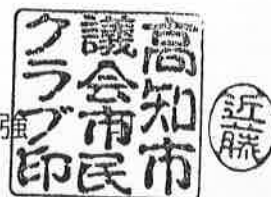 高知市
議会市民
クラブ印
近藤
強